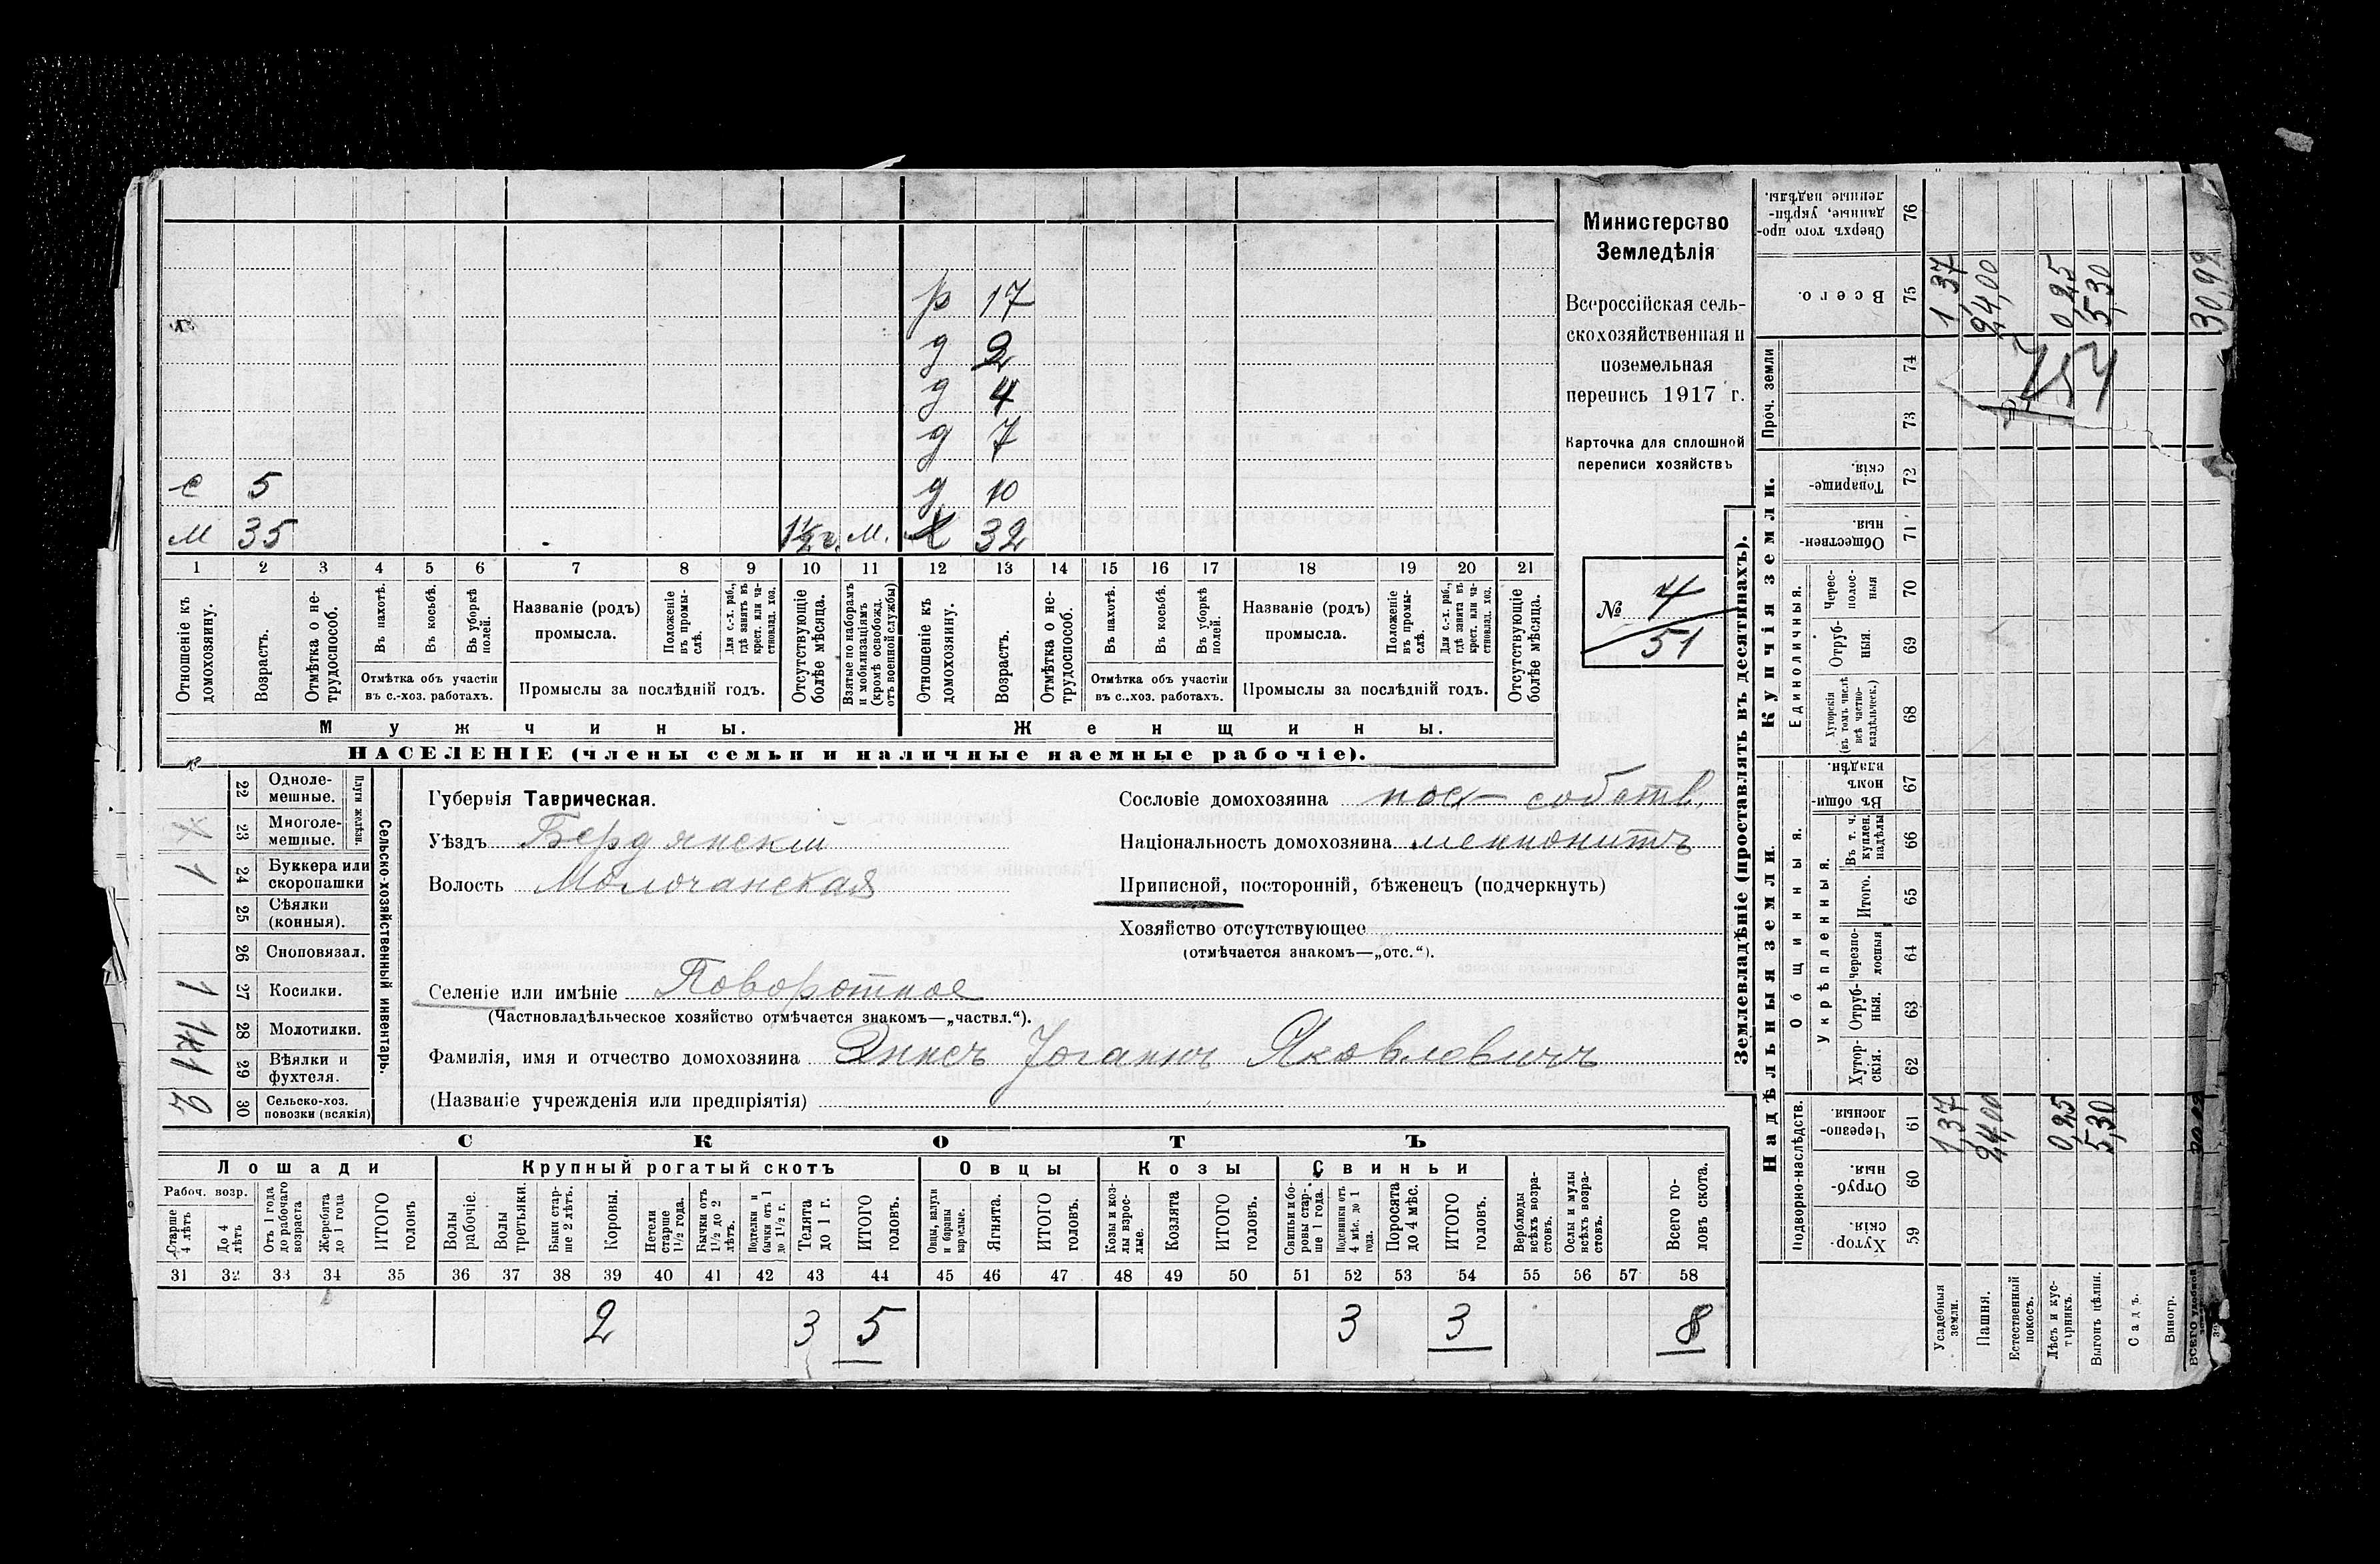 р 17
д 2
д 4
д 7
с 5 д 10
м 35 1½ г. м. х 32
1 2 3 4 5 6 7 8 9 10 11 12 13 14 15 16 17 18 19 20 21
Отношеніе къ домохозяину.
Возрастъ.
Отмѣтка о не-
трудоспособ.
Въ пахотѣ.
Въ косьбѣ.
Въ уборкѣ
полей.
Отмѣтка объ участіи
въ с.-хоз. работахъ.
Названіе (родъ)
промысла.
Положеніе
въ промы-
слѣ.
Для с.-х. раб.,
гдѣ занятъ въ
крест. или ча-
стновлад. хоз.
Промыслы за послѣдній годъ.
Отсутствующіе
болѣе мѣсяца.
Взятые по наборамъ
и мобилизаціямъ
(кромѣ освобожд.
отъ военной службы)
Отношеніе къ
домохозяину.
Возрастъ.
Отмѣтка о не-
трудоспособ.
Въ пахотѣ.
Въ косьбѣ.
Въ уборкѣ
полей.
Отмѣтка объ участіи
въ с.-хоз. работахъ.
Названіе (родъ)
промысла.
Положеніе
въ промы-
слѣ.
Для с.-х. раб.,
гдѣ занята въ
крест. или ча-
стновлад. хоз.
Промыслы за послѣдній годъ.
Отсутствующіе
болѣе мѣсяца.
Мужчины. Женщины.
НАСЕЛЕНІЕ (члены семьи и наличные наемные рабочіе).
Министерство
Земледѣлія
Всероссійская сель-
скохозяйственная и
поземельная
перепись 1917 г.
Карточка для сплошной
переписи хозяйствъ
№ 4
51
Сельско-хозяйственный инвентарь.
Плуги желѣзн.
22 Одноле-
мешные.
23 Многоле-
мешные.
1 24 Буккера или
скоропашки
25 Сѣялки
(конныя).
26 Сноповязал.
1 27 Косилки.
28 Молотилки.
1 29 Вѣялки и
фухтеля.
2 30 Сельско-хоз.
повозки (всякія)
Губернія Таврическая.
Уѣздъ Бердянскій
Волость Молочанская
Селеніе или имѣніе Поворотное
(Частновладѣльческое хозяйство отмѣчается знакомъ—„частвл.“).
Фамилія, имя и отчество домохозяина Эннсъ Іоганнъ Яковлевичъ
(Названіе учрежденія или предпріятія)
Сословіе домохозяина пос– собств.
Національность домохозяина меннонитъ
Приписной, посторонній, бѣженецъ (подчеркнуть)
Хозяйство отсутствующее
(отмѣчается знакомъ—„отс.“).
СКОТЪ
Лошади Крупный рогатый скотъ Овцы Козы Свиньи
Рабоч. возр.
Старше
4 лѣтъ
До 4
лѣтъ
Отъ 1 года
до рабочаго
возраста
Жеребята
до 1 года
ИТОГО
головъ
Волы
рабочіе.
Волы
третьяки.
Быки стар-
ше 2 лѣтъ.
Коровы.
Нетели
старше
1½ года.
Бычки отъ
1½ до 2
лѣтъ.
Подтелки и
бычки отъ 1
до 1½ г.
Телята
до 1 г.
ИТОГО
головъ.
Овцы, валухи
и бараны
взрослые.
Ягнята.
ИТОГО
головъ.
Козы и коз-
лы взрос-
лые.
Козлята
ИТОГО
головъ.
Свиньи и бо-
ровы стар-
ше 1 года.
Подсвинки отъ
4 мѣс. до 1
года.
Поросята
до 4 мѣс.
ИТОГО
головъ.
Верблюды
всѣхъ возра-
стовъ.
Ослы и мулы
всѣхъ возра-
стовъ.
Всего го-
ловъ скота.
31 32 33 34 35 36 37 38 39 40 41 42 43 44 45 46 47 48 49 50 51 52 53 54 55 56 57 58
2 3 5 3 3 8
Землевладѣніе (проставлять въ десятинахъ).
Надѣльныя земли.
Купчія земли.
Проч. земли
Подворно-наслѣдств.
Общинныя.
Укрѣпленныя.
Единоличныя.
Сверхъ того про-
данные, укрѣп-
ленные надѣлы.
76
Всего.
75
74
73
Товарище-
скія.
72
Обществен-
ныя.
71
Черес-
полос-
ныя
70
Отруб-
ныя.
69
Хуторскія
(въ томъ числѣ
всѣ частно-
владѣльческ.)
68
Въ общи-
номъ
владѣн.
67
Въ т. ч.
куплен.
надѣлы
66
Итого.
65
Черезпо-
лосныя
64
Отруб-
ныя.
63
Хутор-
скія.
62
Черезпо-
лосныя.
61
Отруб-
ныя.
60
Хутор-
скія.
59
1,37 24,00 0,25 5,30 30,92
754
1,37 24,00 0,25 5,30
Усадебныя
земли.
Пашня.
Естественный
покосъ.
Лѣсъ и кус-
тарникъ.
Выгонъ цѣлин.
Садъ.
Виногр.